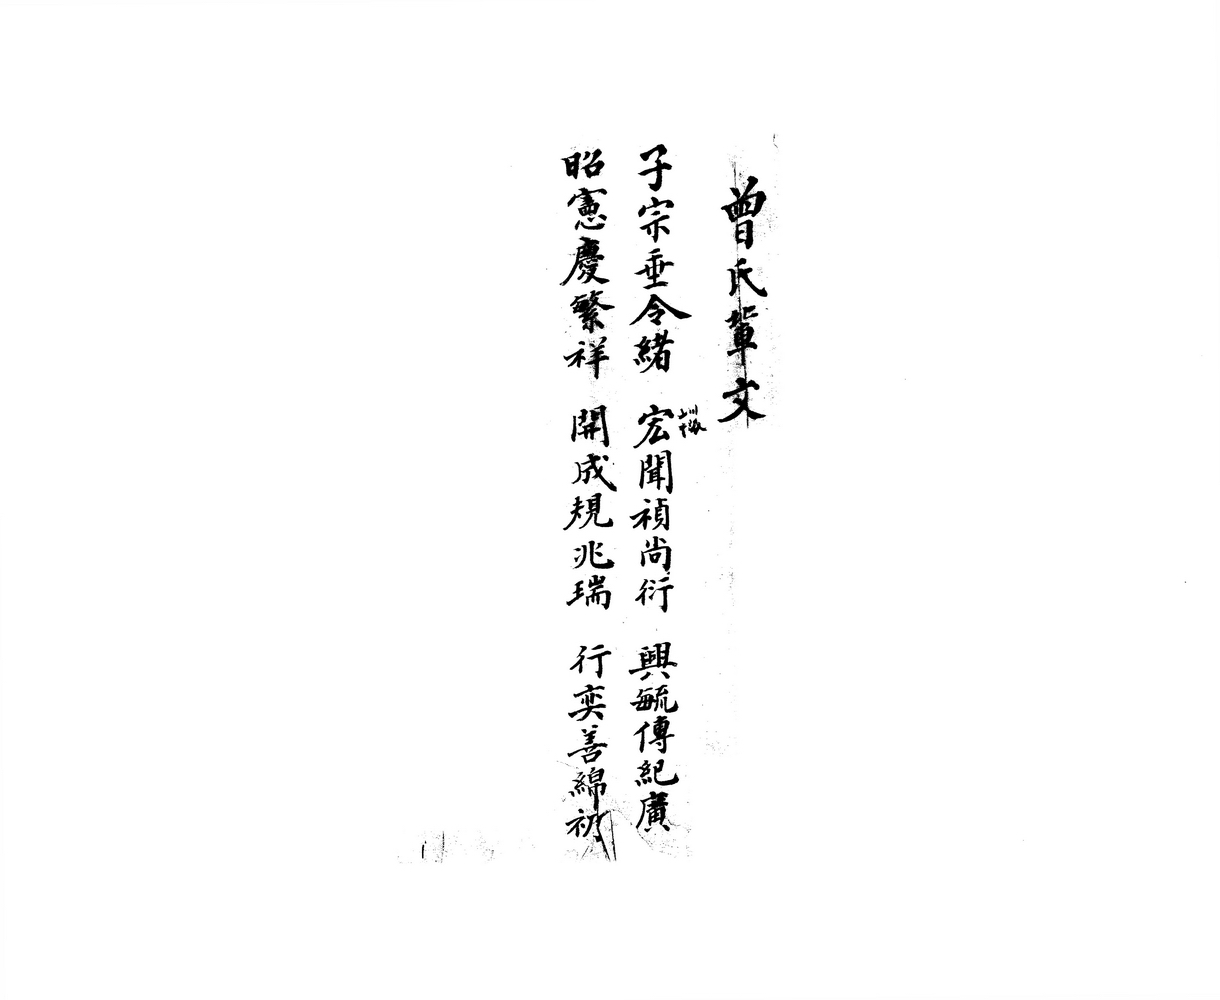 曾氏軰文
子宗垂令緒 宏聞禎尚衍 興毓傳紀廣
昭憲慶繁祥 開成規兆瑞 行奕善綿初